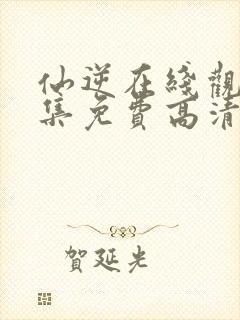 仙逆在綫觀
集免費高清
賀延光